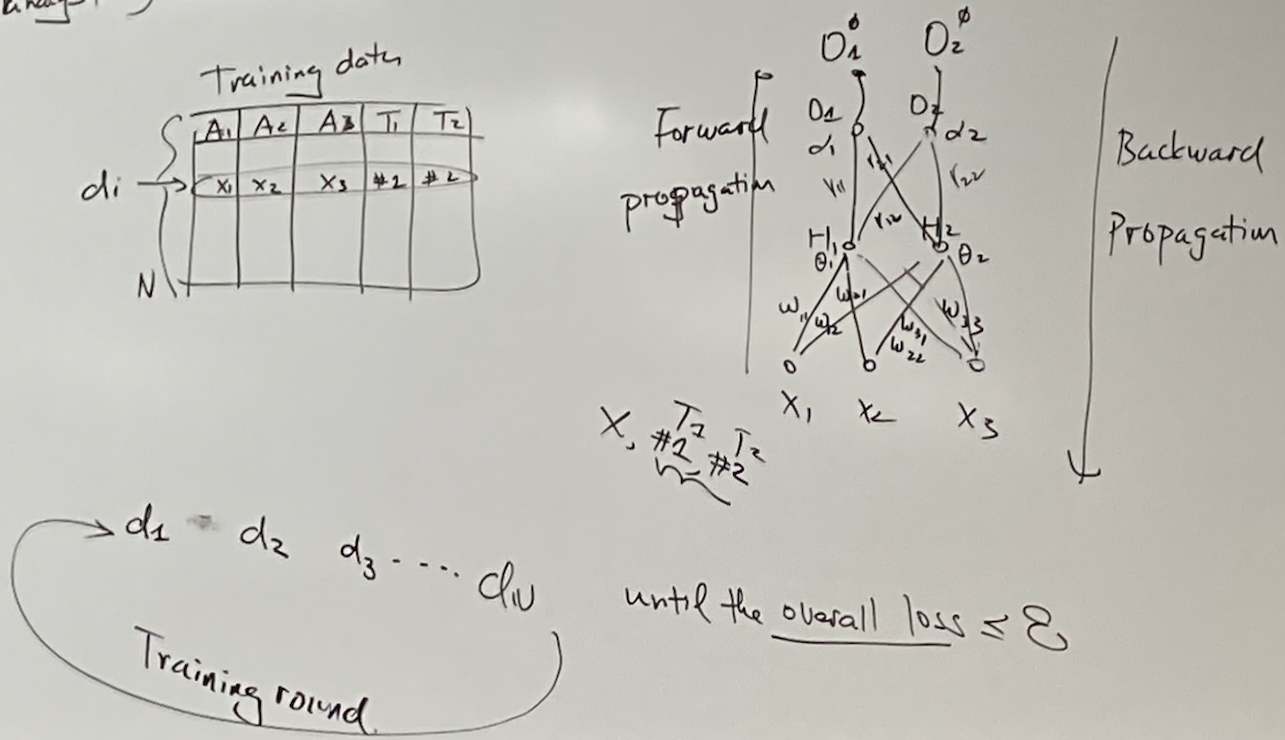 Training data
A1 A2 A3 T1 T2
di → x1 x2 x3 #1 #2
N
Forward
propagation
O1^ϕ O2^ϕ
O1 O2
α1 α2
V11 V21 V12 V22
H1 H2
θ1 θ2
W11 W12 W21 W31 W22 W33
X1 X2 X3
Backward
Propagation
X, T1 T2
#1 #2
d1 d2 d3 .... dN
Training round
until the overall loss ≤ ε